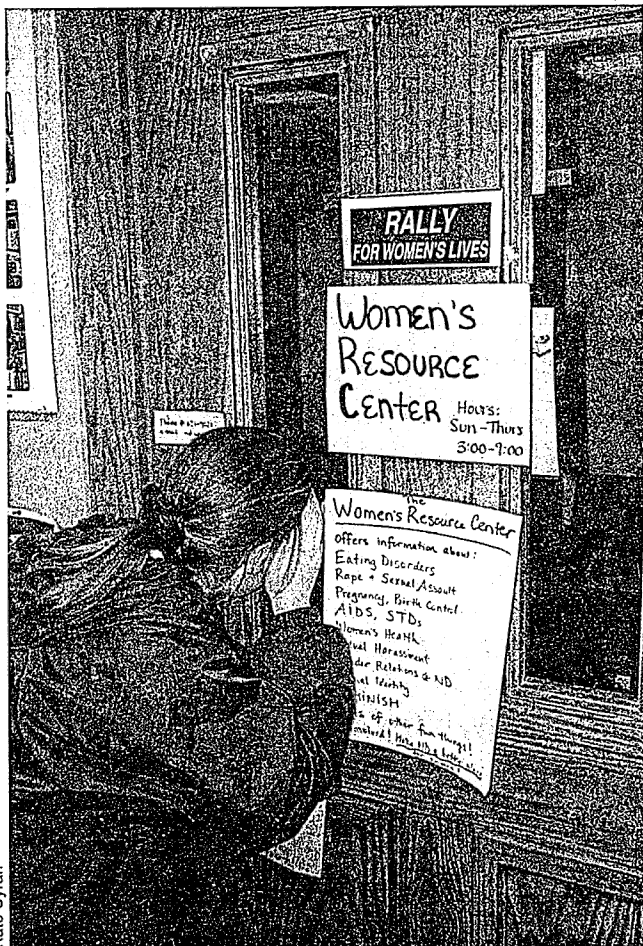 RALLY
FOR WOMEN'S LIVES
WOMEN'S
RESOURCE
CENTER
Hours:
Sun-Thurs
3:00-9:00
The
Women's Resource Center
Offers information about:
Eating Disorders
Rape + Sexual Assault
Pregnancy, Birth Control
AIDS, STDs
Women's Health
Harassment
Relations @ ND
Identity
of other fun things!